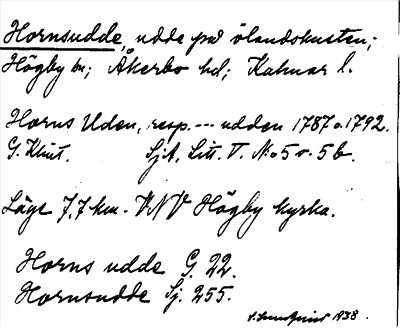 Hornsudde, udde på ölandskusten;
Högby sn; Åkerbo hd; Kalmar l.
Horns Uden, resp. --- udden 1787 o. 1792.
G. Klint. SjA, Litt. V. No 5 o. 5b.
Läge 7,7 km. VNV Högby kyrka.
Horns udde G. 22.
Hornsudde Sj. 255.
1938.